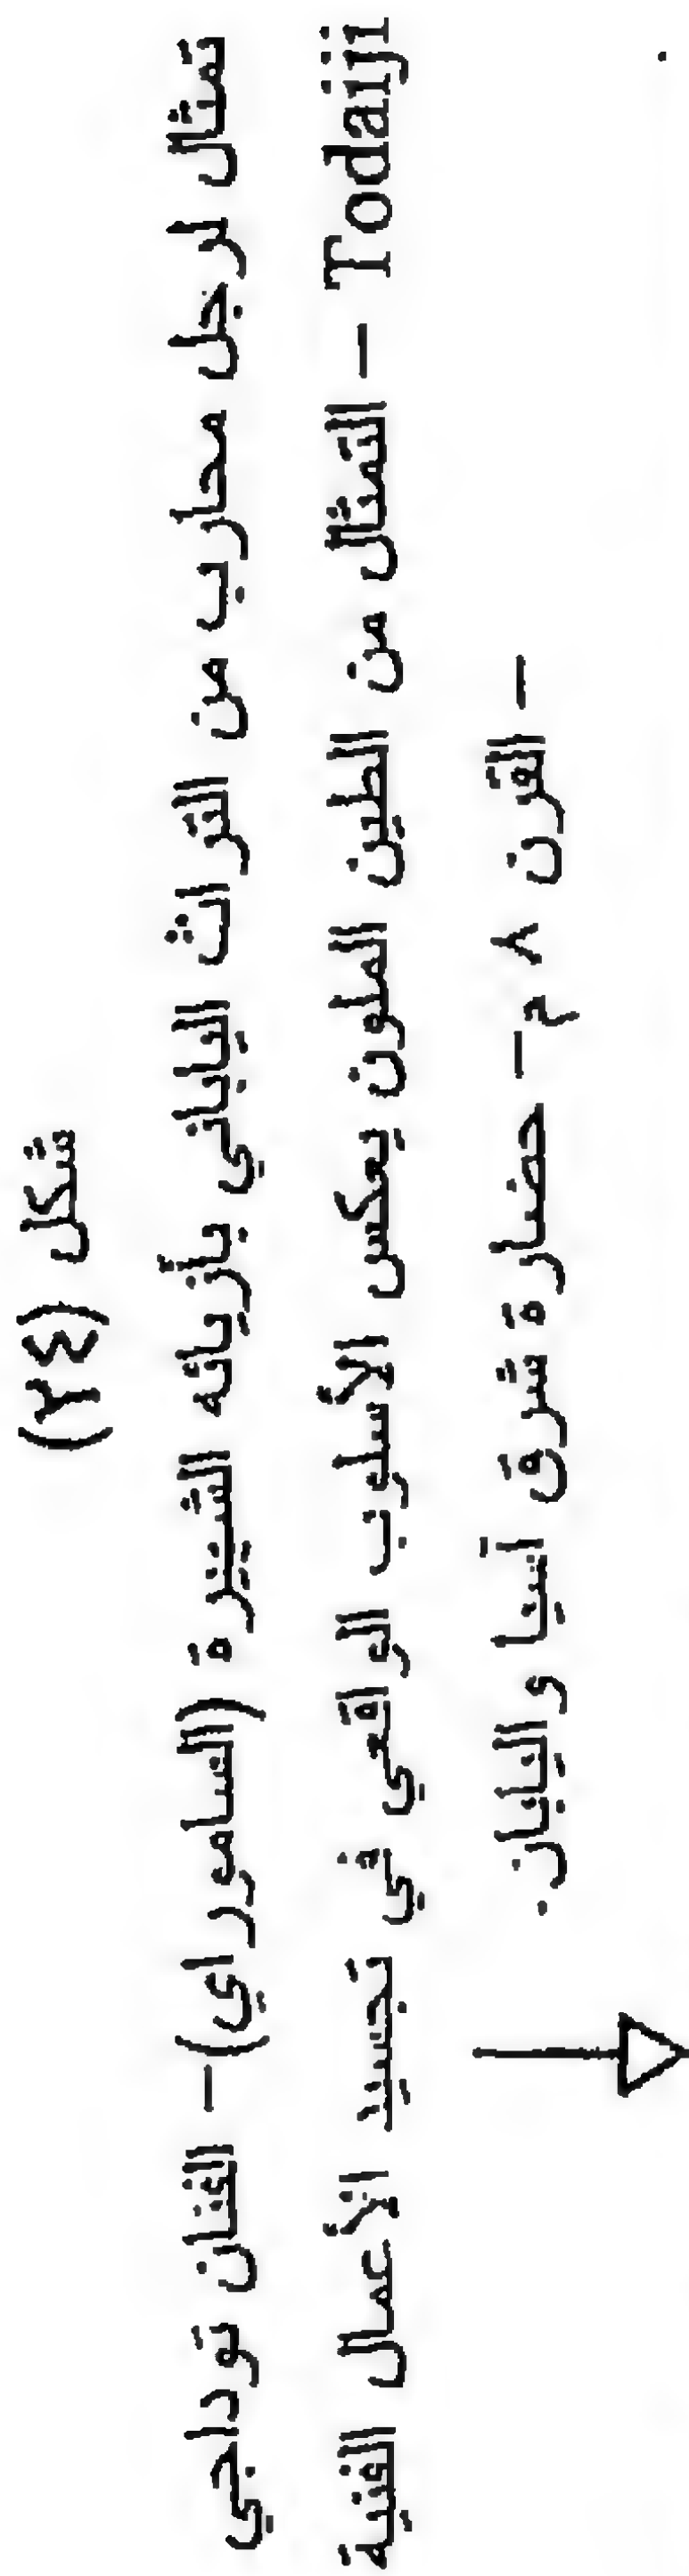 شكل (٢٤)
تمثال لرجل محارب من التراث الياباني بأزيائه الشهيرة (الساموراي)– الفنان توداجي
Todaiji – التمثال من الطين الملون يعكس الأسلوب الواقعي في تجسيد الأعمال الفنية
– القرن ٨ م– حضارة شرق آسيا واليابان.